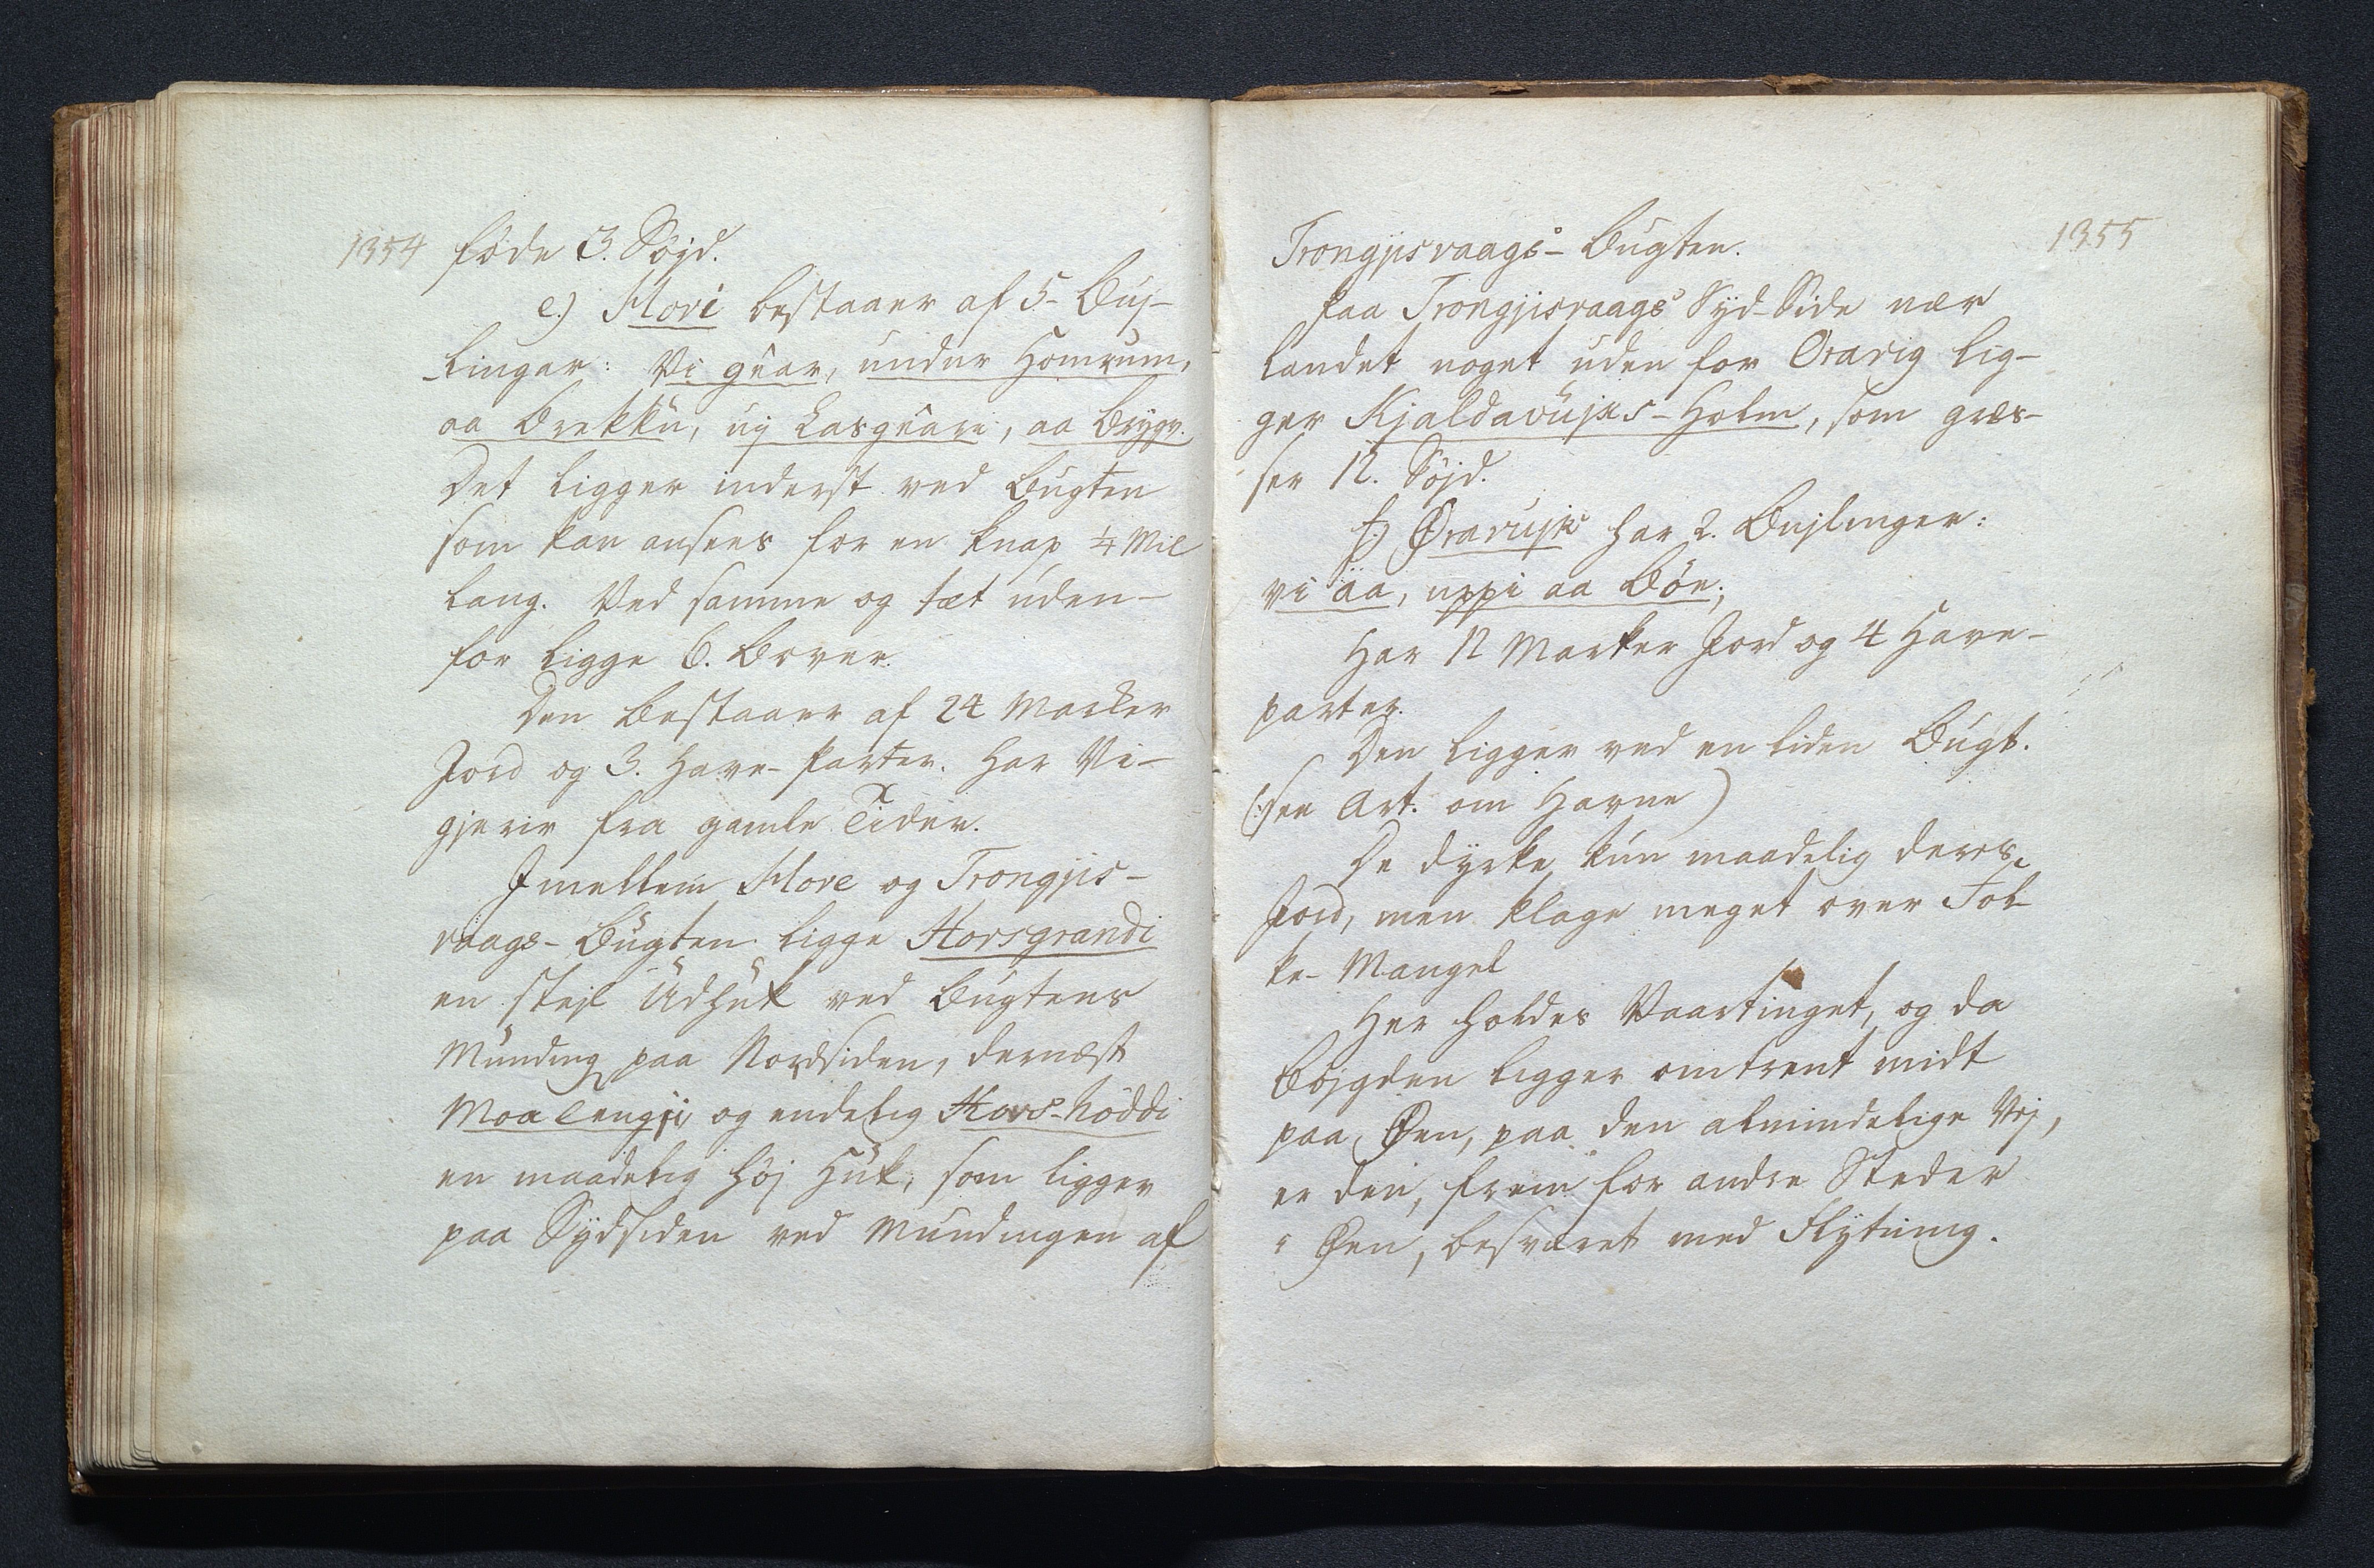 1354
føde 3. Søjd.
e.) Hovi bestaaer af 5- Buj-
linger: Vi gûar, undur Homrum,
aa Brekku, uj Lasgûari, aa Bryggv.
Det ligger inderst ved Bugten
som kan ansees for en knap ¼ Mil
lang. Ved samme og tæt uden-
for ligge 6. Bover.
Den bestaaer af 24 Marker
Jord og 3. Have-Parter. Har Vi-
gjerir fra gamle Tider.
Imellem Hove og Trongjis-
vaags-Bugten ligge Horsgrandi
en stejl Udhuk ved Bugtens
Munding paa Nordsiden, dernæst
Moalengji og endelig Hovs-höddi
en maadelig høj Huk, som ligger
paa Sydsiden ved Mundingen af
1355
Trongjisvaags-Bugten.
Paa Trongjisvaags Syd-Side nær
Landet noget uden for Oravig lig-
ger Kjaldavujks-Holm, som græs-
ser 12. Søjd.
f.) Øravujk har 2. Bujlinger:
vi äa, uppi aa Bôe;
Har 12 Marker Jord og 4 Have-
parter.
Den ligger ved en liden Bugt.
(:see Art. om Havne)
De dyrke kun maadelig deres
Jord, men klage meget over Fol-
ke-Mangel
Her holdes Vaartinget, og da
Bøjgden ligger omtrent midt
paa Øen, paa den almindelige Vej,
er den, frem for andre Steder
Øen, besværet med Flytning.